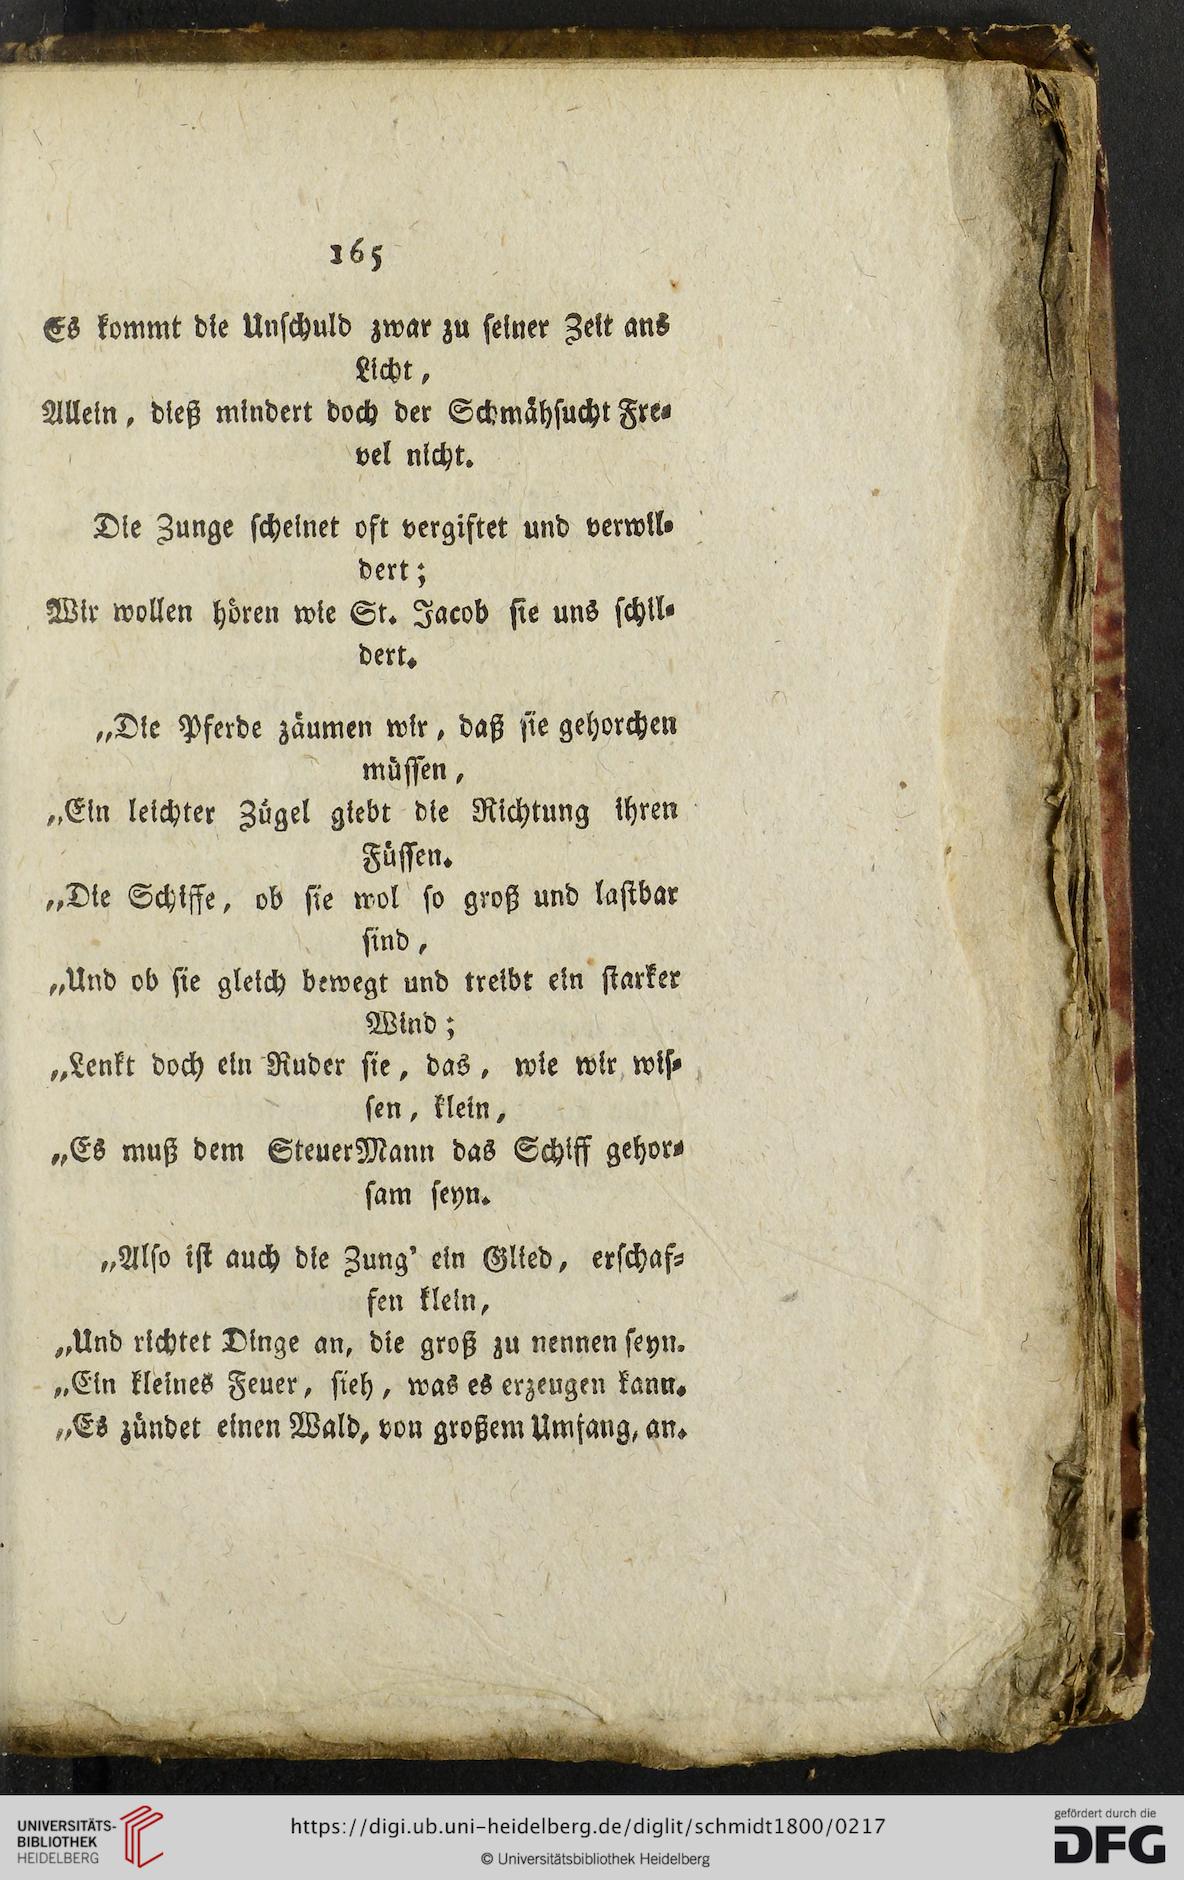 165
Es kommt die Unschuld zwar zu seiner Zeit ans
Licht,
Allein, dieß mindert doch der Schmähsucht Fre-
vel nicht.
Die Zunge scheinet oft vergiftet und verwil-
dert;
Wir wollen hören wie St. Jacob sie uns schil-
dert.
„Die Pferde zäumen wir, daß sie gehorchen
müssen,
„Ein leichter Zügel giebt die Richtung ihren
Füssen.
„Die Schiffe, ob sie wol so groß und lastbar
sind,
„Und ob sie gleich bewegt und treibt ein starker
Wind;
„Lenkt doch ein Ruder sie, das, wie wir wis-
sen, klein,
„Es muß dem SteuerMann das Schiff gehor-
sam seyn.
„Also ist auch die Zung' ein Glied, erschaf-
fen klein,
„Und richtet Dinge an, die groß zu nennen seyn.
„Ein kleines Feuer, sieh, was es erzeugen kann.
„Es zündet einen Wald, von großem Umfang, an.
UNIVERSITÄTS-
BIBLIOTHEK
HEIDELBERG
https://digi.ub.uni-heidelberg.de/diglit/schmidt1800/0217
© Universitätsbibliothek Heidelberg
gefördert durch die
DFG